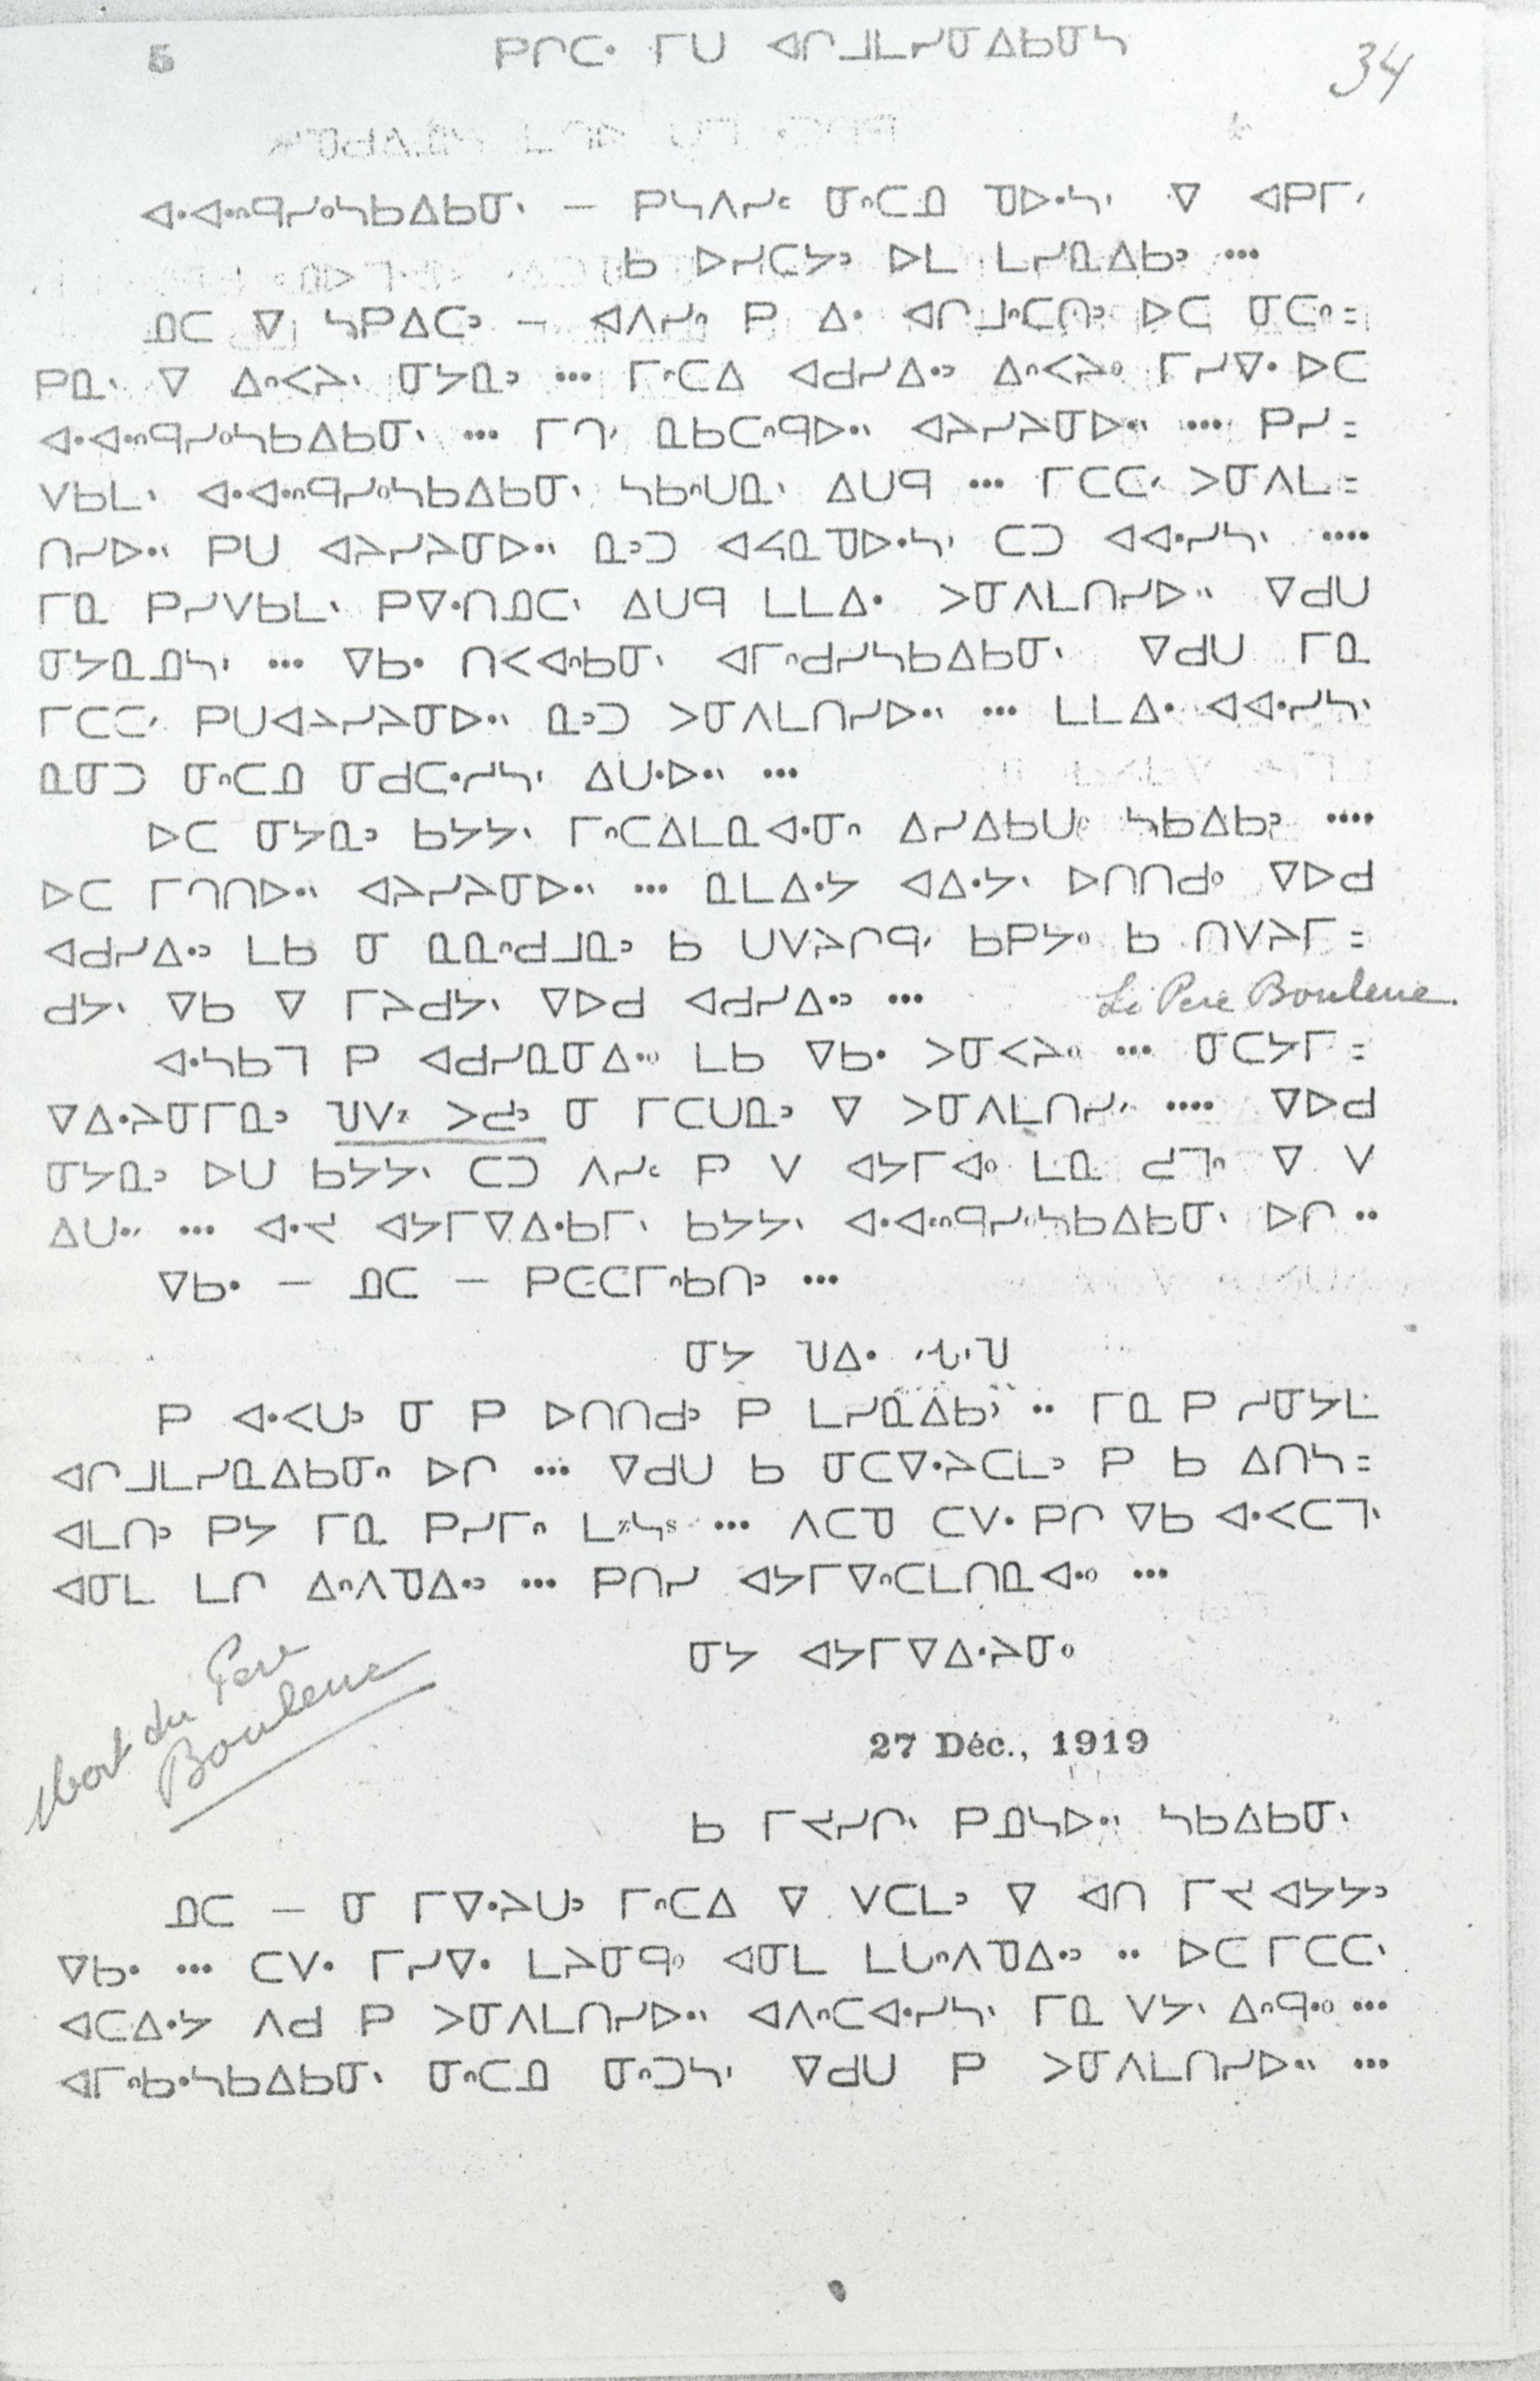 5 ᑭᒋᑕᐧ ᒥᑌ ᐊᒋᒧᒪᓯᓂᐃᑲᓂᓴ 34
ᐊᐧᐊᐧᐢᑫᓯᐤᓴᑲᐃᑲᓂᐠ — ᑭᓴᐱᓯᒼ ᓂᐢᑕᓄ ᓀᐅᐧᓴᐠ ᐁ ᐊᑭᒥᐟ
ᑲ ᐅᓯᑕᔭᐣ ᐅᒪ ᒪᓯᓇᐃᑲᐣ ...
ᓄᑕ ᐁ ᓴᑭᐃᑕᐣ — ᐊᐱᓯᐢ ᑭ ᐃᐧ ᐊᒋᒧᐢᑕᑎᐣ ᐅᑕ ᓂᑕᐢ =
ᑭᓇᐠ ᐁ ᐃᐢᐸᔨᐠ ᓂᔭᓇᐣ ... ᒥᐢᑕᐃ ᐊᑯᓯᐃᐧᐣ ᐃᐢᐸᔨᐤ ᒥᓯᐁᐧ ᐅᑕ
ᐊᐧᐊᐧᐢᑫᓯᐤᓴᑲᐃᑲᓂᐠ ... ᒥᒉᐟ ᓇᑲᑕᐢᑫᐅᐧᐠ ᐊᔨᓯᔨᓂᐅᐧᐠ .... ᑭᓯ =
ᐯᑲᒪᐠ ᐊᐧᐊᐧᐢᑫᓯᐤᓴᑲᐃᑲᓂᐠ ᓴᑲᐢᑌᓇᐠ ᐃᑌᑫ ... ᒥᑕᑕᐟ ᐳᓂᐱᒪ =
ᑎᓯᐅᐧᐠ ᑭᑌ ᐊᔨᓯᔨᓂᐅᐧᐠ ᓇᐣᑐ ᐊᐚᓇ ᓀᐅᐧᓴᐠ ᑕᑐ ᐊᐊᐧᓯᓴᐠ ....
ᒥᓇ ᑭᓯᐯᑲᒪᐠ ᑭᐁᐧᑎᓄᑕᐠ ᐃᑌᑫ ᒪᒪᐃᐧ ᐳᓂᐱᒪᑎᓯᐅᐧᐠ ᐁᑯᑌ
ᓂᔭᓇᓄᓴᐠ ... ᐁᑲᐧ ᑎᐸᐊᐢᑲᓂᐠ ᐊᒥᐢᑯᓯᓴᑲᐃᑲᓂᐠ ᐁᑯᑌ ᒥᓇ
ᒥᑕᑕᐟ ᑭᑌᐊᔨᓯᔨᓂᐅᐧᐠ ᓇᐣᑐ ᐳᓂᐱᒪᑎᓯᐅᐧᐠ ... ᒪᒪᐃᐧ ᐊᐊᐧᓯᓴᐠ
ᓇᓂᑐ ᓂᐢᑕᓄ ᓂᑯᑕᐧᓯᓴᐠ ᐃᑌᐧᐅᐧᐠ ...
ᐅᑕ ᓂᔭᓇᐣ ᑲᔭᔭᐠ ᒥᐢᑕᐃᒪᓇᐊᐧᓂᐢ ᐃᓯᐃᑲᑌᐤ ᓴᑲᐃᑲᐣ ....
ᐅᑕ ᒥᒉᑎᐅᐧᐠ ᐊᔨᓯᔨᓂᐅᐧᐠ ... ᓇᒪᐃᐧᔭ ᐊᐃᐧᔭᐠ ᐅᑎᑎᑯᐤ ᐁᐅᑯ
ᐊᑯᓯᐃᐧᐣ ᒪᑲ ᓂ ᓇᓇᐢᑯᒧᓇᐣ ᑲ ᑌᐯᔨᒋᑫᐟ ᑲᑭᔭᐤ ᑲ ᑎᐯᔨᒥ =
ᑯᔭᐠ ᐁᑲ ᐁ ᒥᔨᑯᔭᐠ ᐁᐅᑯ ᐊᑯᓯᐃᐧᐣ ... Le Pere Bouleue.
ᐊᐧᓴᑲᒣ ᑭ ᐊᑯᓯᓇᓂᐃᐧᐤ ᒪᑲ ᐁᑲᐧ ᐳᓂᐸᔨᐤ ... ᓂᑕᔭᒥ =
ᐁᐃᐧᔨᓂᒥᓇᐣ ᐳᑯᐣ ᓂ ᒥᑕᑌᓇᐣ ᐁ ᐳᓂᐱᒪᑎᓯᐟ .... ᐁᐅᑯ
ᓂᔭᓇᐣ ᐅᑌ ᑲᔭᔭᐠ ᑕᑐ ᐱᓯᒼ ᑭ ᐯ ᐊᔭᒥᐊᐤ ᒪᓇ ᑯᒣᐢ ᐁ ᐯ
ᐃᑌᐧᐟ ... ᐊᐧᔪ ᐊᔭᒥᐁᐃᐧᑲᒥᐠ ᑲᔭᔭᐠ ᐊᐧᐊᐧᐢᑫᓯᐤᓴᑲᐃᑲᓂᐠ ᐅᒋ ..
ᐁᑲᐧ — ᓄᑕ — ᑭᑕᑕᒥᐢᑲᑎᐣ ...
ᓂᔭ
ᑭ ᐊᐧᐸᑌᐣ ᓂ ᑭ ᐅᑎᑎᑯᐣ ᑭ ᒪᓯᓇᐃᑲᐣ .. ᒥᓇ ᑭ ᓯᓂᔭᒪ
ᐊᒋᒧᒪᓯᓇᐃᑲᓂᐢ ᐅᒋ ... ᐁᑯᑌ ᑲ ᓂᑕᐁᐧᔨᑕᒪᐣ ᑭ ᑲ ᐃᑎᓴ =
ᐊᒪᑎᐣ ᑭᔭ ᒥᓇ ᑭᓯᒥᐢ ... ᐱᑕᓀ ᑕᐯᐧ ᑭᒋ ᐁᑲ ᐊᐧᐸᑕᒣᐠ
ᐊᓂᒪ ᒪᒋ ᐃᐢᐱᓀᐃᐧᐣ ... ᑭᑎᓯ ᐊᔭᒥᐁᐢᑕᒪᑎᓇᐊᐧᐤ ...
ᓂᔭ ᐊᔭᒥᐁᐃᐧᔨᓂᐤ
Mort du Pere
Bouleue
27 Déc., 1919
ᑲ ᒥᔪᓯᒋᐠ ᑭᓄᓴᐅᐧᐠ ᓴᑲᐃᑲᓂᐠ
ᓄᑕ — ᓂ ᒥᐁᐧᔨᑌᐣ ᒥᐢᑕᐃ ᐁ ᐯᑕᒪᐣ ᐁ ᐊᑎ ᒥᔪ ᐊᔭᔭᐣ
ᐁᑲᐧ ... ᑕᐯᐧ ᒥᓯᐁᐧ ᒪᔨᓂᑫᐤ ᐊᓂᒪ ᒪᑌᐢᐱᓀᐃᐧᐣ .. ᐅᑕ ᒥᑕᑕᐠ
ᐊᑕᐃᐧᔭ ᐱᑯ ᑭ ᐳᓂᐱᒪᑎᓯᐅᐧᐠ ᐊᐱᐢᑕᐊᐧᓯᓴᐠ ᒥᓇ ᐯᔭᐠ ᐃᐢᑫᐧᐤ ...
ᐊᒥᐢᑲᐧᓴᑲᐃᑲᓂᐠ ᓂᐢᑕᓄ ᓂᐢᑐᓴᐠ ᐁᑯᑌ ᑭ ᐳᓂᐱᒪᑎᓯᐅᐧᐠ ...